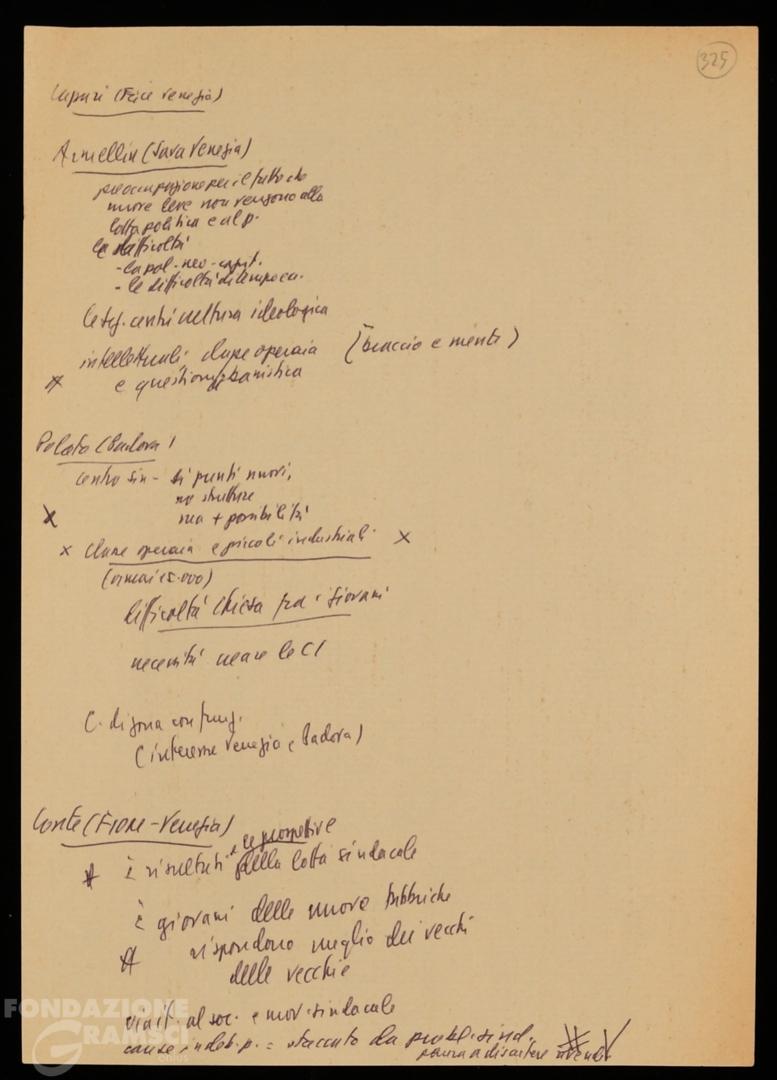 325
Lupari (Sice Venezia)
Armellin (Sava Venezia)
preoccupazione per il fatto che
nuove leve non vengono alla
lotta politica e al p.
le difficoltà
- la pol. neo-capit.
- le difficoltà di
centri cultura ideologica
intellettuali classe operaia (braccio e mente)
e questione urbanistica
Polato (Padova)
centro sin - si punti nuovi,
no strutture
ma + possibilità
x classe operaia e piccoli industriali x
(ormai 15.000)
difficoltà chiesa fra i giovani
necessità creare le CI
C. di zona con funz.
(interesse Venezia e Padova)
Conte (Fiom - Venezia)
e prospettive
i risultati della lotta sindacale
i giovani delle nuove fabbriche
rispondono meglio dei vecchi
delle vecchie
al soc. e mov. sindacale
cause indeb. p. = staccato da probl. sind.
paura a discutere
FONDAZIONE
GRAMSCI
ONLUS